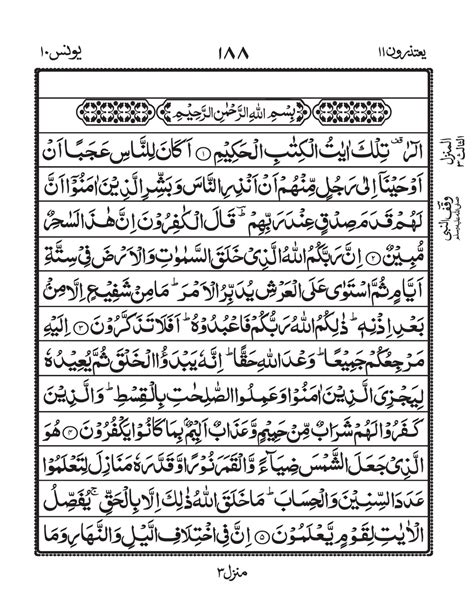 یعتذرون ۱۱ ۱۸۸ یونس ۱۰
بِسْمِ اللهِ الرَّحْمٰنِ الرَّحِيْمِ
الٓرٰ ۚ تِلْكَ اٰيٰتُ الْكِتٰبِ الْحَكِيْمِ ۝۱ اَكَانَ لِلنَّاسِ عَجَبًا اَنْ
اَوْحَيْنَاۤ اِلٰى رَجُلٍ مِّنْهُمْ اَنْ اَنْذِرِ النَّاسَ وَبَشِّرِ الَّذِيْنَ اٰمَنُوْۤا اَنَّ
لَهُمْ قَدَمَ صِدْقٍ عِنْدَ رَبِّهِمْ ؕ قَالَ الْكٰفِرُوْنَ اِنَّ هٰذَا لَسٰحِرٌ
مُّبِيْنٌ ۝۲ اِنَّ رَبَّكُمُ اللهُ الَّذِيْ خَلَقَ السَّمٰوٰتِ وَالْاَرْضَ فِيْ سِتَّةِ
اَيَّامٍ ثُمَّ اسْتَوٰى عَلَى الْعَرْشِ يُدَبِّرُ الْاَمْرَ ؕ مَا مِنْ شَفِيْعٍ اِلَّا مِنْۢ
بَعْدِ اِذْنِهٖ ؕ ذٰلِكُمُ اللهُ رَبُّكُمْ فَاعْبُدُوْهُ ؕ اَفَلَا تَذَكَّرُوْنَ ۝۳ اِلَيْهِ
مَرْجِعُكُمْ جَمِيْعًا ؕ وَعْدَ اللهِ حَقًّا ؕ اِنَّهٗ يَبْدَؤُا الْخَلْقَ ثُمَّ يُعِيْدُهٗ
لِيَجْزِيَ الَّذِيْنَ اٰمَنُوْا وَعَمِلُوا الصّٰلِحٰتِ بِالْقِسْطِ ؕ وَالَّذِيْنَ
كَفَرُوْا لَهُمْ شَرَابٌ مِّنْ حَمِيْمٍ وَّعَذَابٌ اَلِيْمٌۢ بِمَا كَانُوْا يَكْفُرُوْنَ ۝۴ هُوَ
الَّذِيْ جَعَلَ الشَّمْسَ ضِيَآءً وَّالْقَمَرَ نُوْرًا وَّقَدَّرَهٗ مَنَازِلَ لِتَعْلَمُوْا
عَدَدَ السِّنِيْنَ وَالْحِسَابَ ؕ مَا خَلَقَ اللهُ ذٰلِكَ اِلَّا بِالْحَقِّ ۚ يُفَصِّلُ
الْاٰيٰتِ لِقَوْمٍ يَّعْلَمُوْنَ ۝۵ اِنَّ فِي اخْتِلَافِ الَّيْلِ وَالنَّهَارِ وَمَا
منزل ۳
المنزل الثالث ۳
وقف النبی صلی اللہ علیہ وسلم